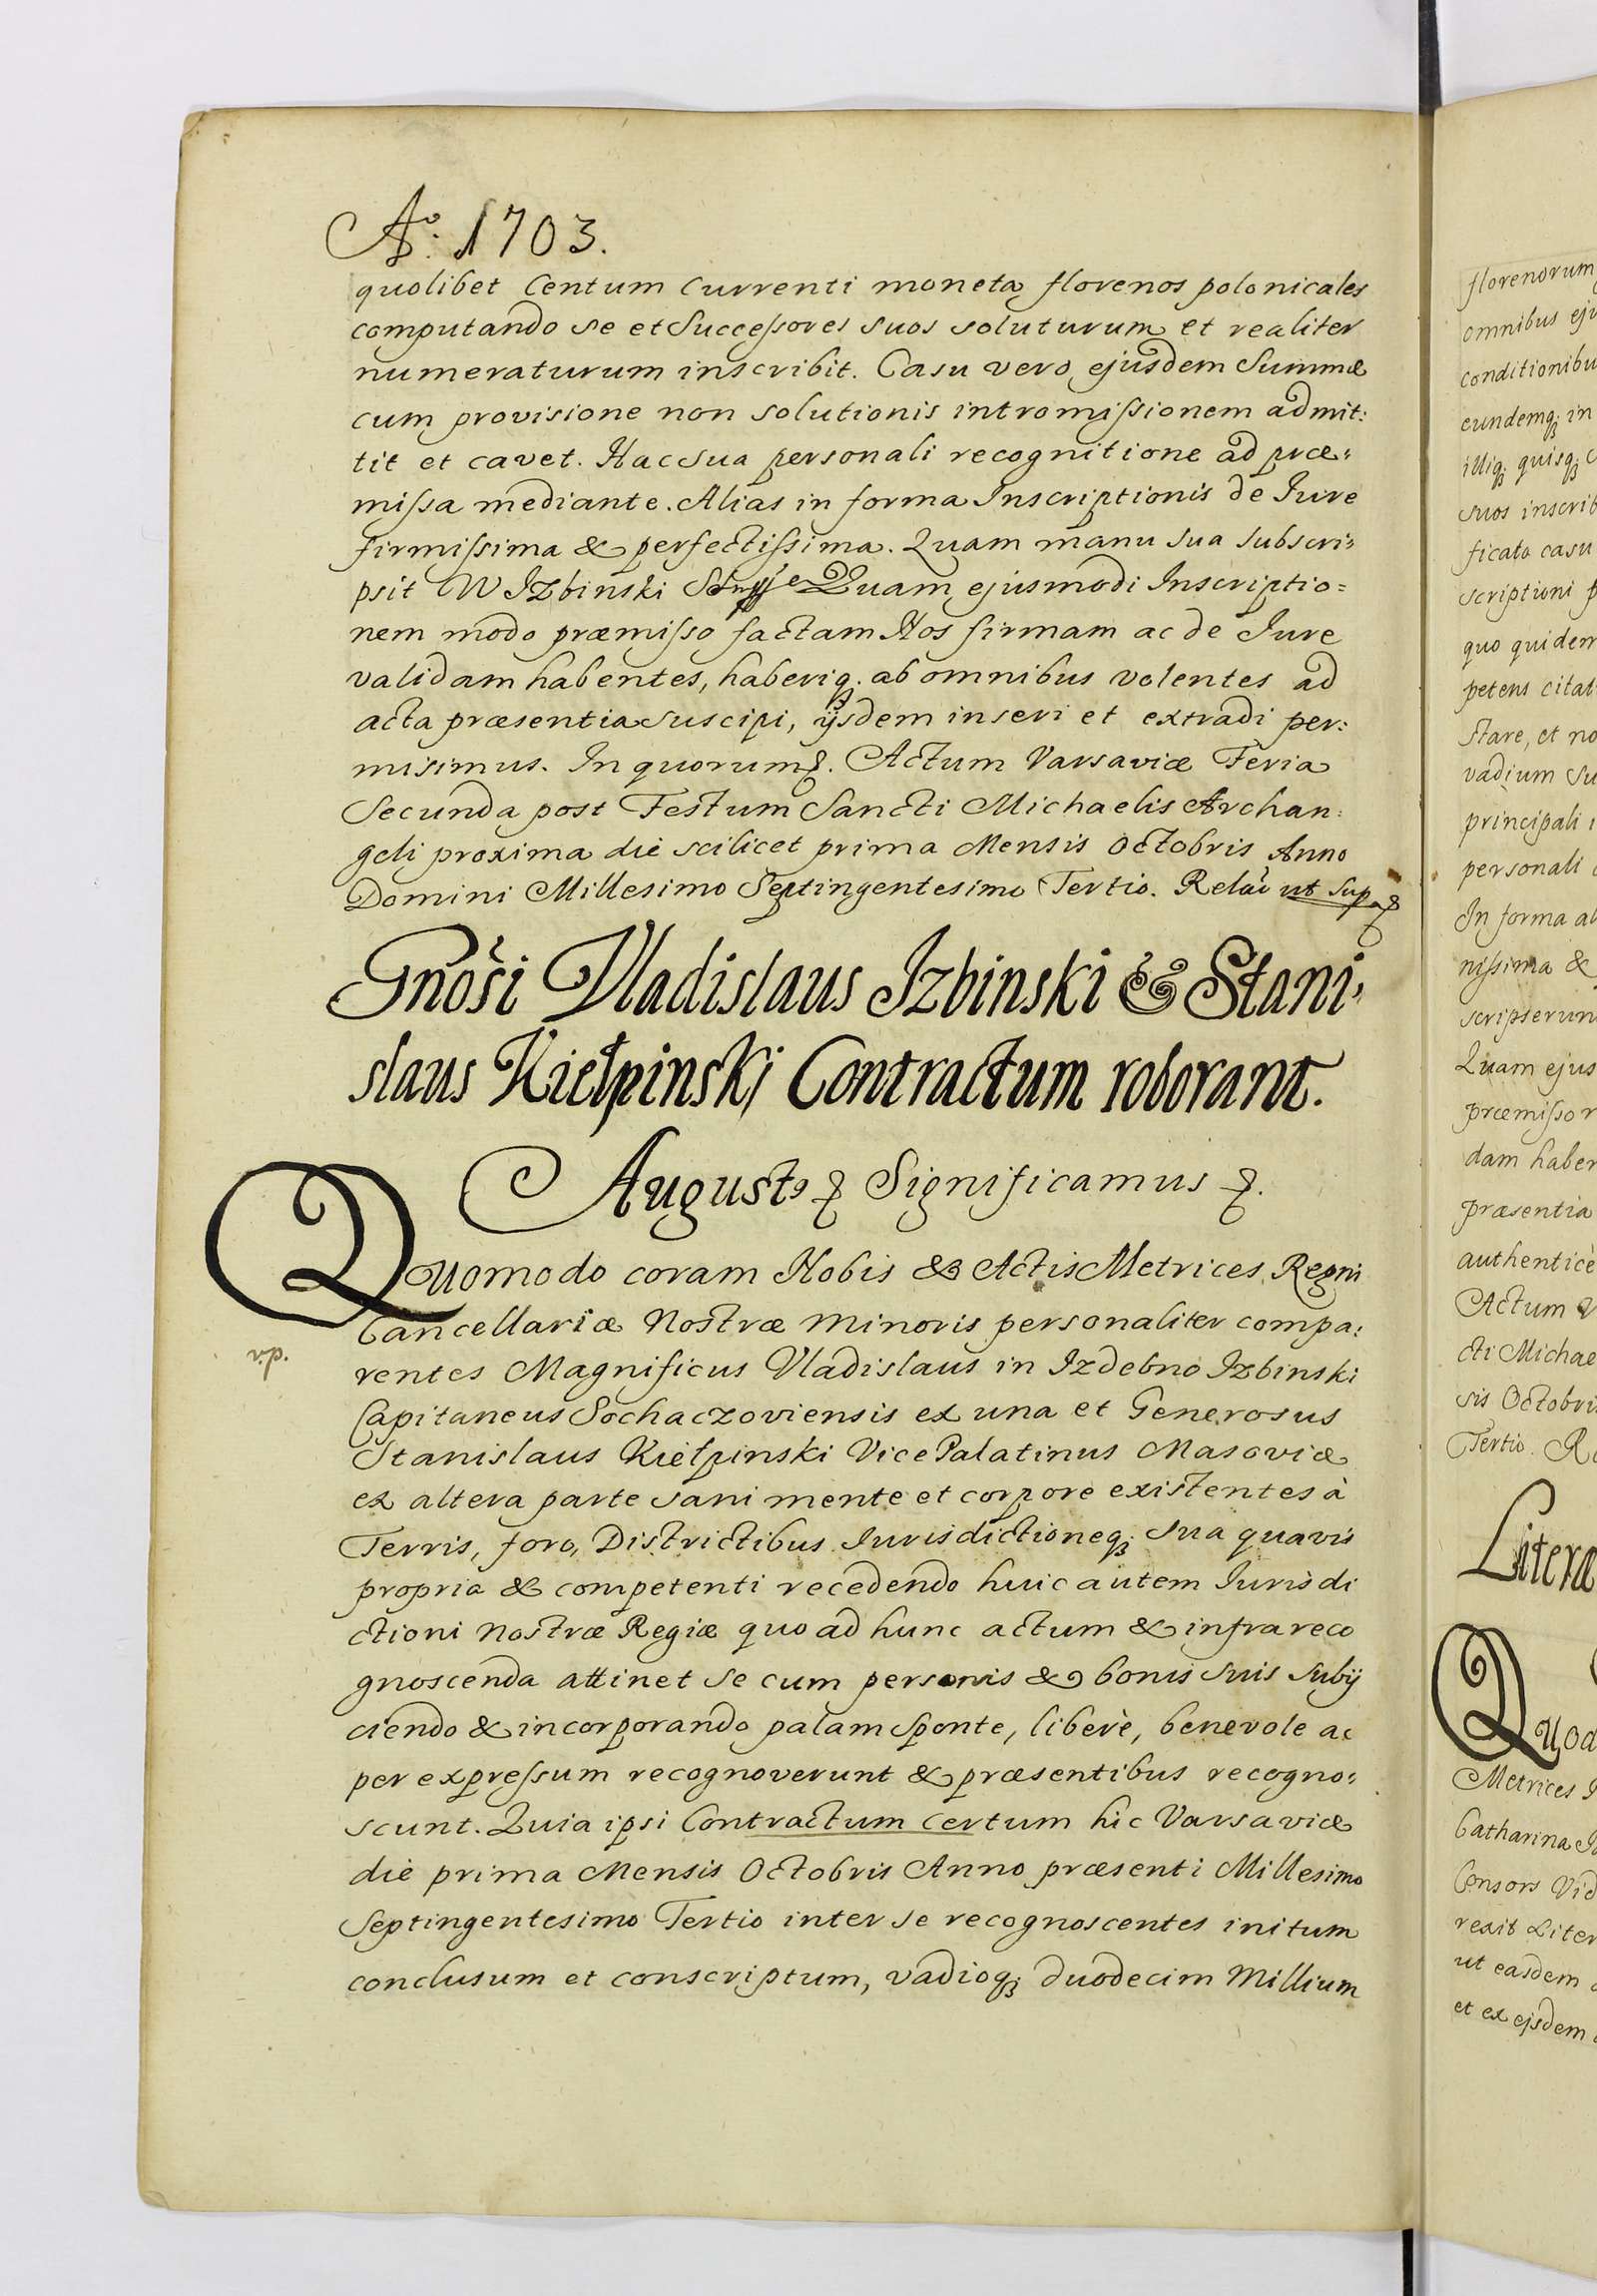 Aº. 1703.
quolibet Centum Currenti moneta florenos polonicales
computando se et Successores suos soluturum et realiter
numeraturum inscribit. Casu vero ejusdem Summæ
cum provisione non solutionis intromissionem admit:
tit et cavet. Hac sua personali recognitione ad præ:
missa mediante. Alias in forma Inscriptionis de Jure
firmissima & perfectissima. Quam manu sua subscri:
psit W Izbinski Quam ejusmodi Inscriptio=
nem modo præmisso factam Nos firmam ac de Jure
validam habentes, haberiq. ab omnibus volentes ad
acta præsentia suscipi, ijsdem inseri et extradi per:
misimus. In quorum. Actum Varsaviæ Feria
Secunda post Festum Sancti Michaelis Archan:
geli proxima die scilicet prima Mensis Octobris Anno
Domini Millesimo Septingentesimo Tertio. Relao ut Supa
Gnosi Vladislaus Izbinski & Stani,
slaus Kiełpinski Contractum roborant.
August9 Significamus
Quomodo coram Nobis & Actis Metrices Regni
Cancellariæ Nostræ Minoris personaliter compa:
rentes Magnificus Vladislaus in Izdebno Izbinski
Capitaneus Sochaczoviensis ex una et Generosus
Stanislaus Kiełpinski Vice Palatinus Masoviæ
ex altera parte sani mente et corpore existentes à
Terris, foro, Districtibus Jurisdictioneq; sua quavis
propria & competenti recedendo huic autem Jurisdi
ctioni Nostræ Regiæ quo ad hunc actum & infra reco
gnoscenda attinet se cum personis & bonis suis subij
ciendo & incorporando palam sponte, liberè, benevole ac
per expressum recognoverunt & præsentibus recogno:
scunt. Quia ipsi Contractum certum hic Varsaviæ
die prima Mensis Octobris Anno præsenti Millesimo
Septingentesimo Tertio inter se recognoscentes initum
conclusum et conscriptum, vadioq; duodecim Millium
florenorum
omnibus
conditionibu
eundemq; in
illiq; quisq;
suos inscrib
ficato casu
scriptioni
quo quidem
petens citat
stare, et no
vadium su
principali
personali
In forma al
nissima &
scripserun
Quam ejus
præmisso
dam haben
præsentia
authenticè
Actum
cti Michae
sis Octobri
Tertio.
Literæ
Quod
Metrices
Catharina
Consors
rexit Liter
ut easdem
et ex ejsdem